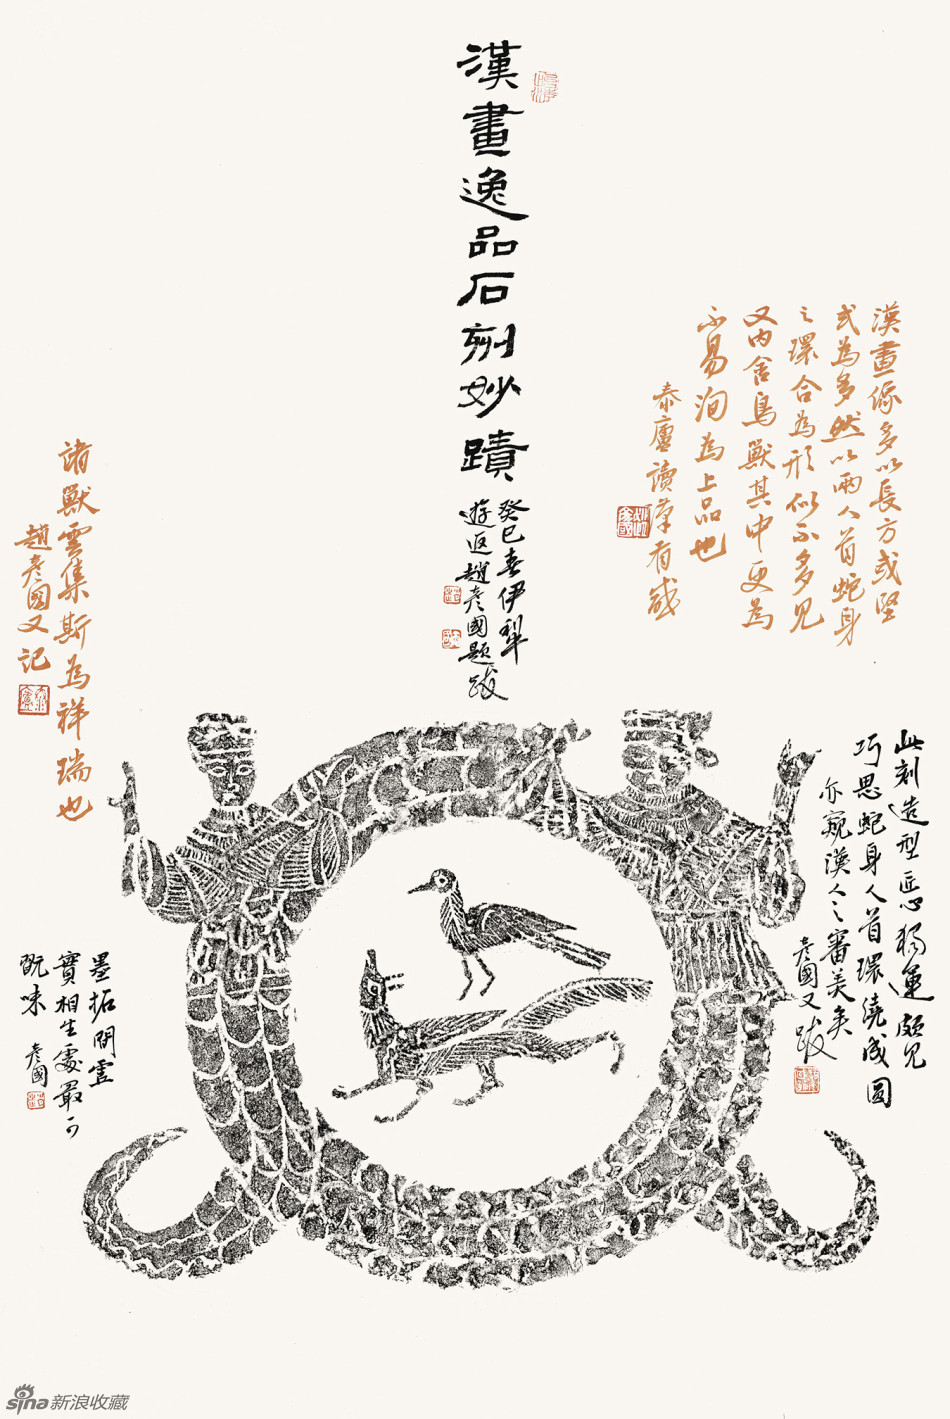 漢畫逸品石刻妙蹟
癸巳春伊犁
遊返趙彥國題跋
漢畫像多以長方或竪
式為多然以兩人首蛇身
之環合為形似不多見
又內舍鳥獸其中更為
不易洵為上品也
泰廬讀草有感
諸獸雲集斯為祥瑞也
趙彥國又記
此刻造型匠心獨運頗見
巧思蛇身人首環繞成圓
亦窺漢人之審美矣
彥國又跋
墨拓間虛
實相生處最可
玩味
彥國
sina新浪收藏